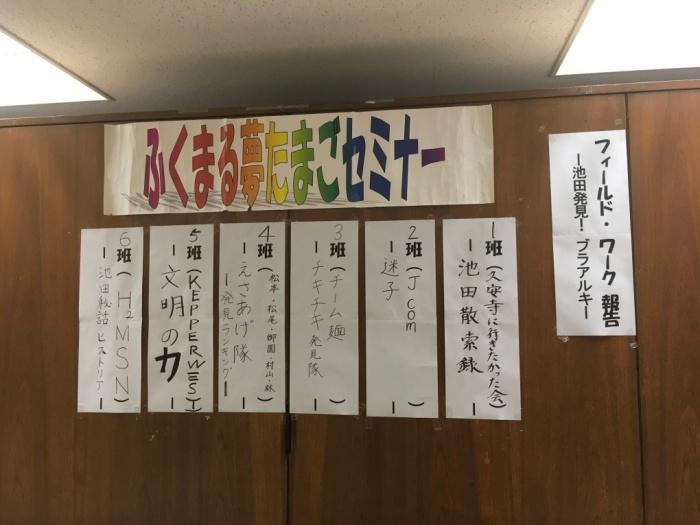 ふくまる夢たまごセミナー
フィールド・ワーク 報告
ー池田発見！ブラアルキー
1班(久安寺に行きたかった会)
ー池田散索録ー
2班(J com)
ー迷子ー
3班(チーム麺)
ーチキチキ発見隊ー
4班(松本・松尾・御園・村山・林)
ーえさあげ隊
ー発見ランキングー
5班(KEPPERWEST)
ー文明の力ー
6班(H2MSN)
ー池田秘話ヒストリアー